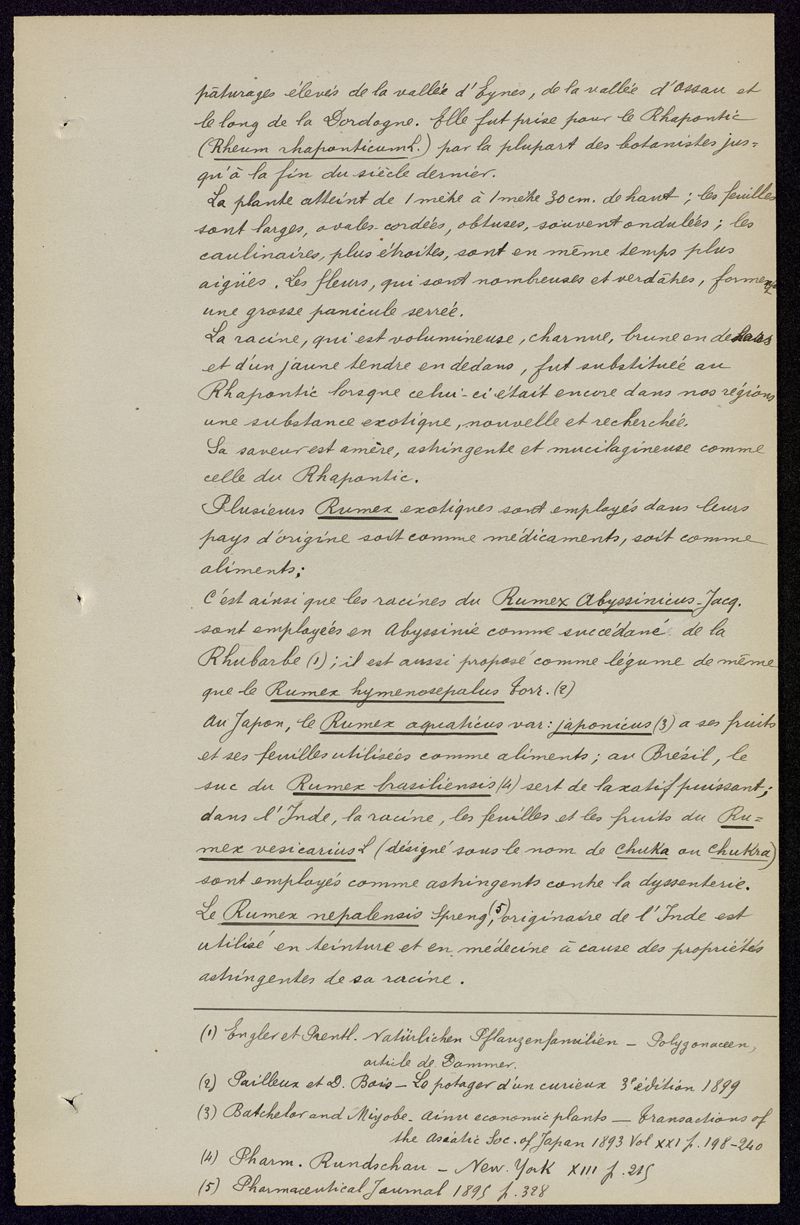 pâturages élevés de la vallée d'Eynes, de la vallée d'Ossau et
le long de la Dordogne. Elle fut prise pour le Rhapontic
(Rheum rhaponticum L.) par la plupart des botanistes jus=
qu'à la fin du siècle dernier.
La plante atteint de 1 mètre à 1 mètre 30 cm. de haut ; les feuilles
sont larges, ovales-cordées, obtuses, souvent ondulées ; les
caulinaires, plus étroites, sont en même temps plus
aigües. Les fleurs, qui sont nombreuses et verdâtres, forment
une grosse panicule serrée.
La racine, qui est volumineuse, charnue, brune en dehors
et d'un jaune tendre en dedans, fut substituée au
Rhapontic lorsque celui-ci était encore dans nos régions
une substance exotique, nouvelle et recherchée.
Sa saveur est amère, astringente et mucilagineuse comme
celle du Rhapontic.
Plusieurs Rumex exotiques sont employés dans leurs
pays d'origine soit comme médicaments, soit comme
aliments;
C'est ainsi que les racines du Rumex Abyssinicus-Jacq.
sont employées en Abyssinie comme succédané de la
Rhubarbe (1) ; il est aussi proposé comme légume de même
que le Rumex hymenosepalus Torr. (2)
Au Japon, le Rumex aquaticus var: japonicus (3) a ses fruits
et ses feuilles utilisées comme aliments ; au Brésil, le
suc du Rumex brasiliensis (4) sert de laxatif puissant ;
dans l'Inde, la racine, les feuilles et les fruits du Ru=
mex vesicarius L (désigné sous le nom de Chuka ou Chukra)
sont employés comme astringents contre la dyssenterie.
Le Rumex nepalensis Spreng, (5) originaire de l'Inde est
utilisé en teinture et en médecine à cause des propriétés
astringentes de sa racine.
(1) Engler et Prentl. Natürlichen Pflanzenfamilien – Polygonaceen,
article de Dammer.
(2) Pailleux et D. Bois – Le potager d'un curieux 3e édition 1899
(3) Batchelor and Miyobe – Ainu economic plants – Transactions of
the Asiatic Soc. of Japan 1893 Vol XXI p. 198-240
(4) Pharm. Rundschau – New. York XIII p. 215
(5) Pharmaceutical Journal 1895 p. 328